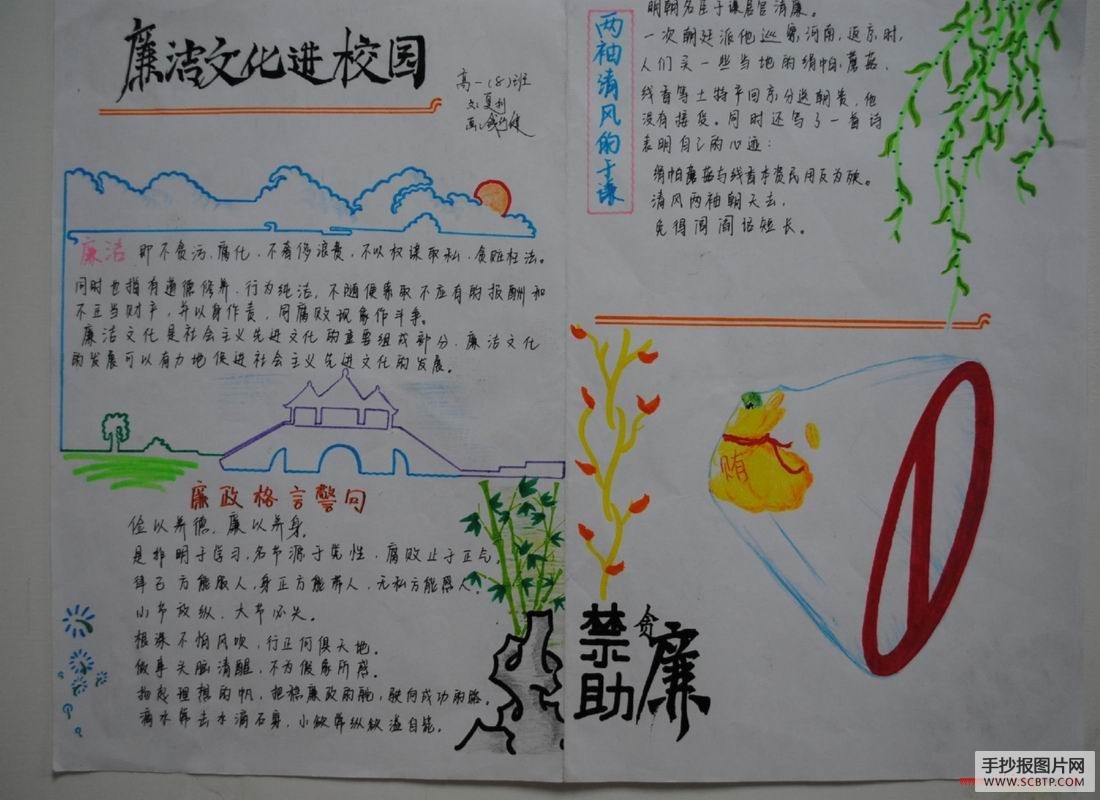 廉洁文化进校园
高一(8)班
文:夏利
廉洁 即不贪污、腐化、不奢侈浪费,不以权谋取私、贪赃枉法。
同时也指有道德修养、行为纯洁,不随便索取不应有的报酬和
不正当财产,并以身作责,同腐败现象作斗争。
廉洁文化是社会主义先进文化的重要组成部分,廉洁文化
的发展可以有力地促进社会主义先进文化的发展。
廉政格言警句
俭以养德,廉以养身。
是非明于学习,名节源于党性,腐败止于正气。
律己方能服人,身正方能带人,无私方能感人。
小节放纵,大节必失。
根深不怕风吹,行正何惧天地。
做事头脑清醒,不为假象所惑。
扬起理想的帆,把稳廉政的舵,驶向成功的路。
滴水弗去水滴石穿,小欲弗纵欲溢自能。
两袖清风的于谦
明朝名臣于谦居官清廉。
一次朝廷派他巡察河南,返京时,
人们买一些当地的绢帕、蘑菇、
线香等土特产回京分送朝贵,他
没有接受。同时还写了一首诗
表明自己的心迹:
绢帕蘑菇与线香本资民用反为殃。
清风两袖朝天去,
免得闾阎话短长。
贿
禁贪
助廉
手抄报图片网
WWW.SCBTP.COM